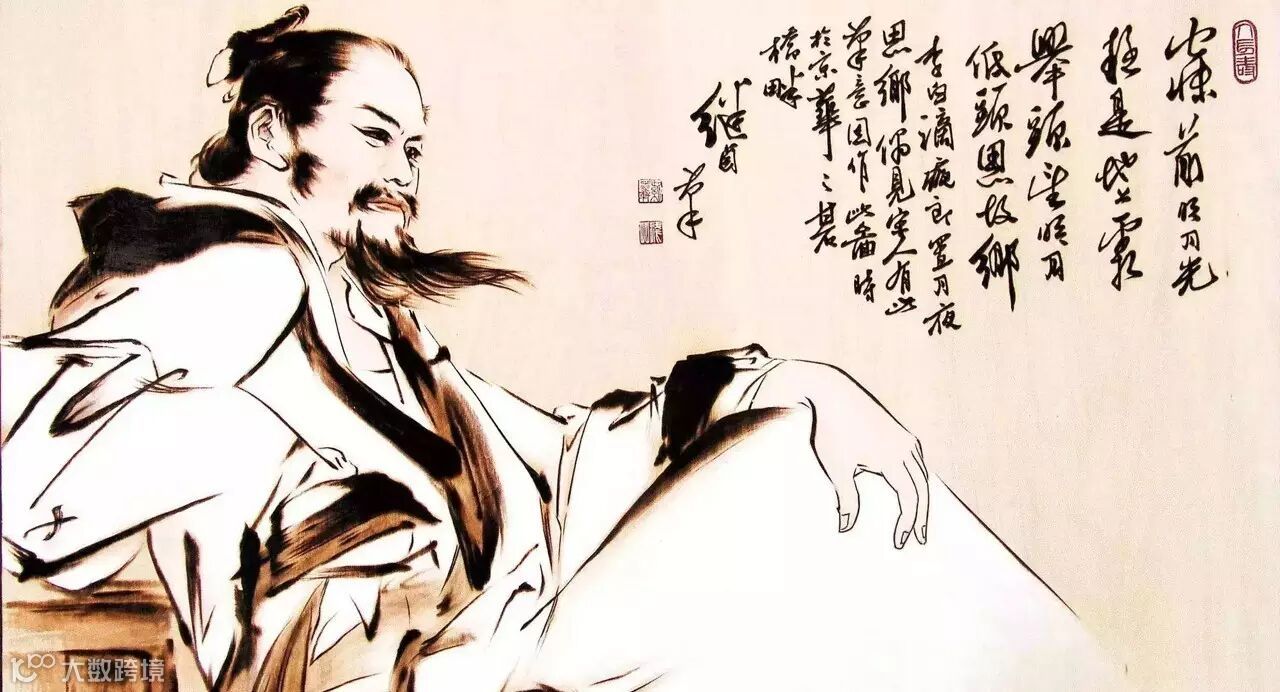 牀前明月光
疑是地上霜
舉頭望明月
低頭思故鄉
李白謫夜郎置月夜
思鄉偶見宋人有此
筆意因作此圖時
於京華之
筆
大数跨境